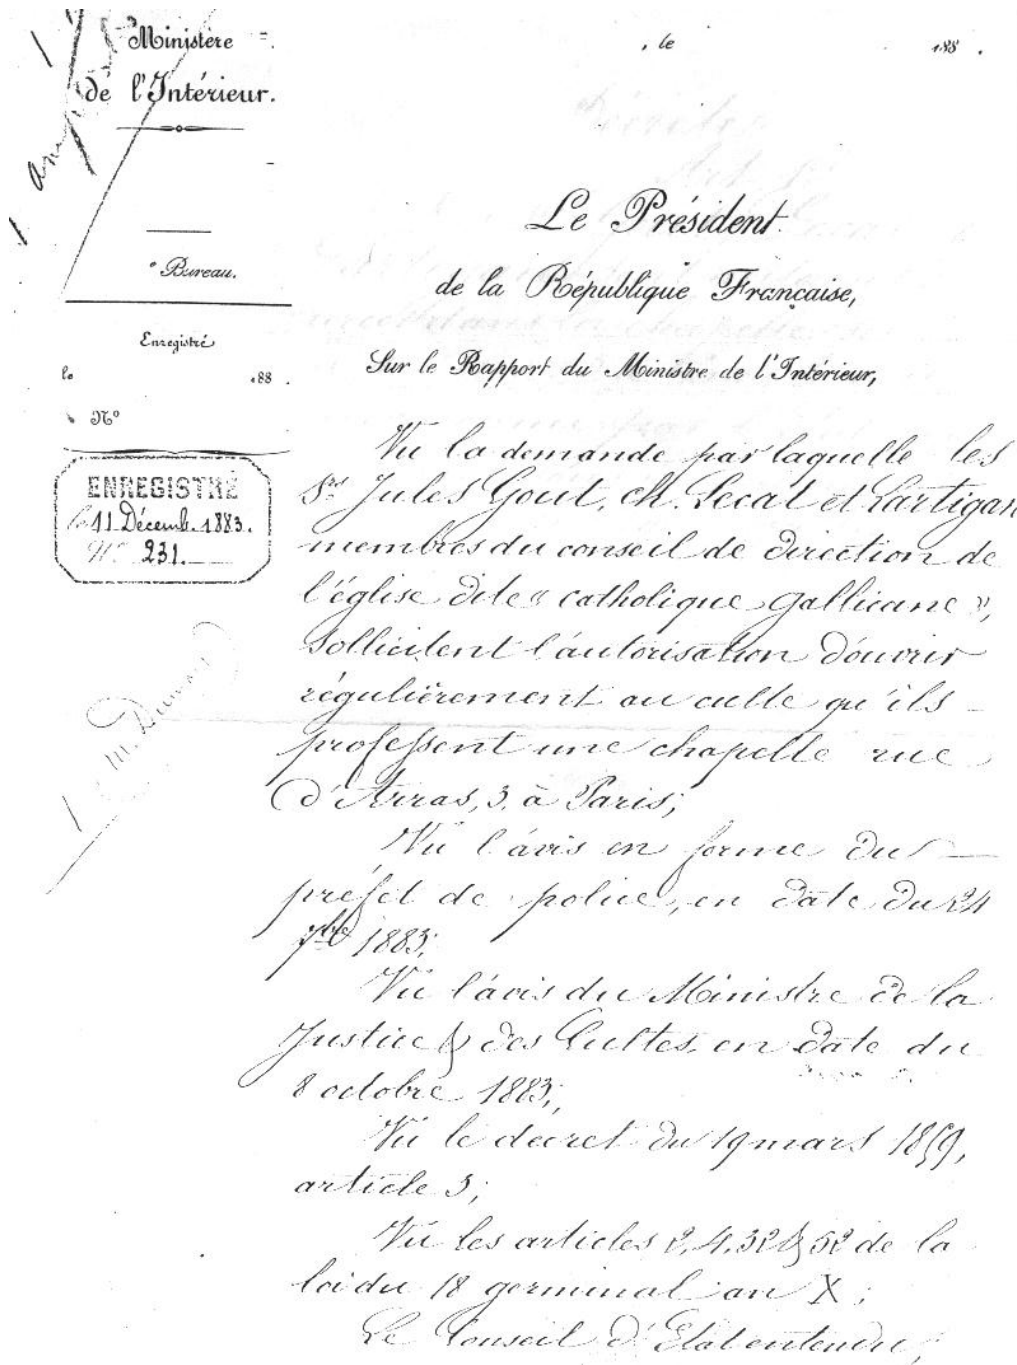 Ministère
de l'Intérieur.
° Bureau.
Enregistré
le 188 .
N°
ENREGISTRÉ
le 11 Décemb. 1883.
N° 231.
, le 188 .
Le Président
de la République Française,
Sur le Rapport du Ministre de l'Intérieur,
Vu la demande par laquelle les
Srs Jules Gout, Ch. Lecat et Lartigau
membres du conseil de direction de
l'église dite « catholique gallicane »,
sollicitent l'autorisation d'ouvrir
régulièrement au culte qu'ils
professent une chapelle rue
d'Arras, 3, à Paris;
Vu l'avis en forme du
préfet de police, en date du 24
7bre 1883;
Vu l'avis du Ministre de la
Justice & des Cultes, en date du
8 octobre 1883;
Vu le décret du 19 mars 1859,
article 3;
Vu les articles 2, 4, 32 & 52 de la
loi du 18 germinal an X;
Le Conseil d'Etat entendu,